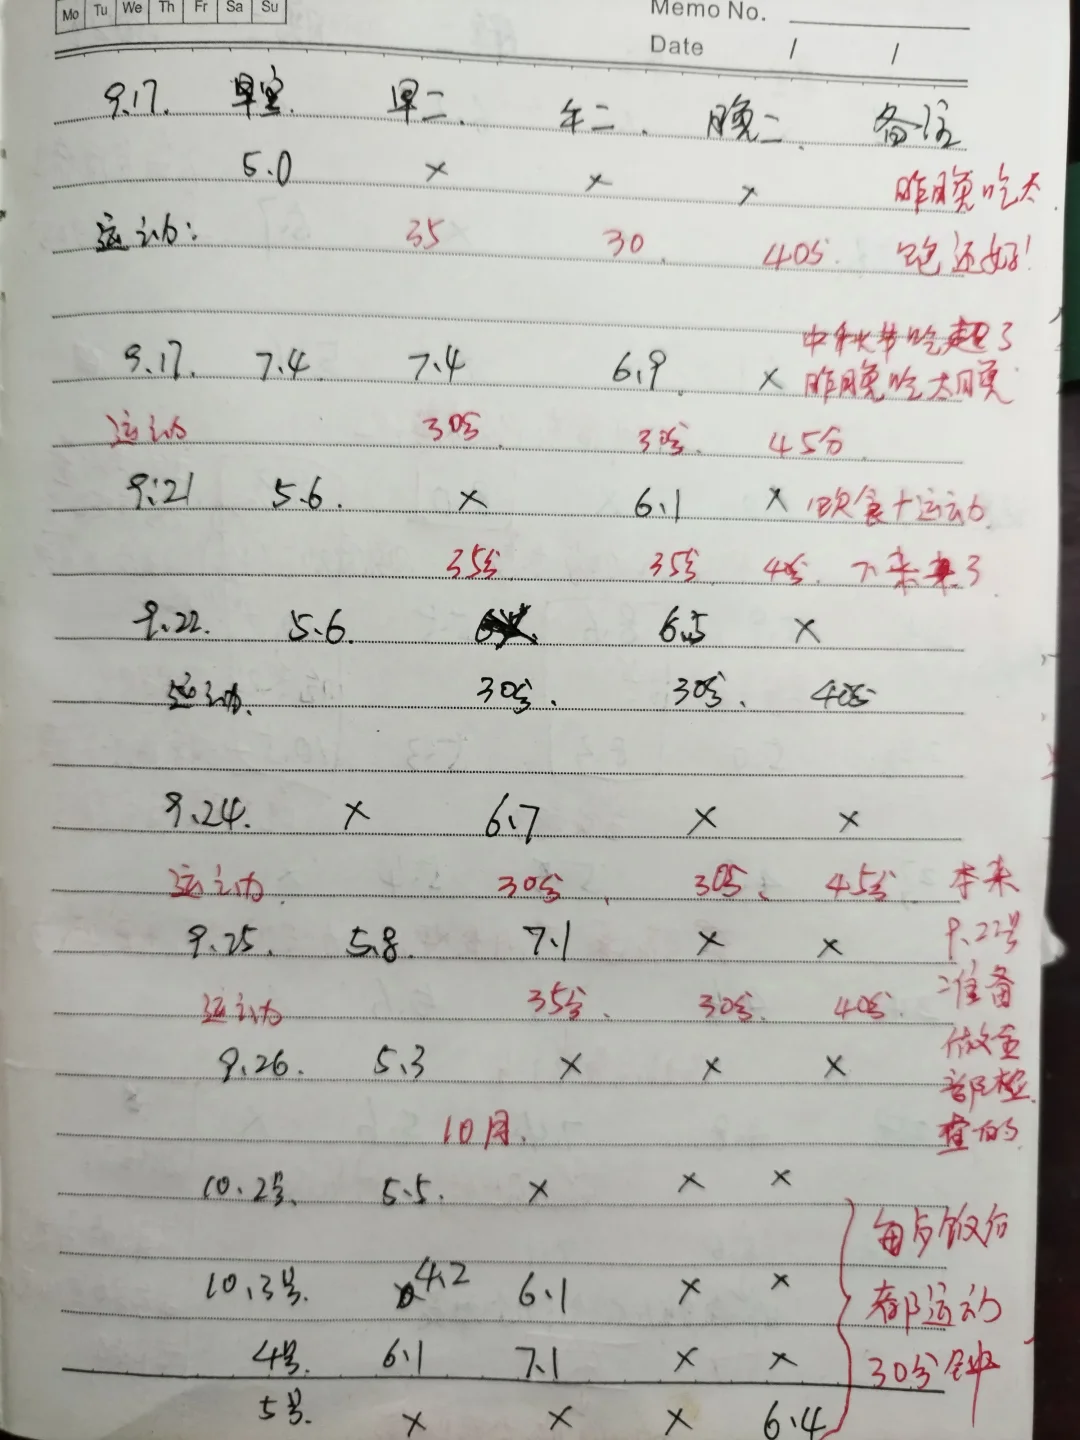 Mo Tu We Th Fr Sa Su
Memo No.
Date / /
9.17. 早空. 早二. 午二. 晚二. 备注
5.0 × × × 昨晚吃太
运动: 35 30. 40分. 饱还好!
中秋节吃超了
9.17. 7.4. 7.4 6.9. × 昨晚吃太晚
运动 30分. 30分. 45分.
9.21 5.6. × 6.1 × 饮食+运动
35分 35分. 40分. 下来来了
9.22. 5.6. 6.5 ×
运动. 30分. 30分. 40分
9.24. × 6.7 × ×
运动. 30分. 30分. 45分 本来
9.25. 5.8. 7.1 × × 9.22号
运动 35分. 30分. 40分. 准备
9.26. 5.3 × × × 做全
部检
10月. 查的
10.2号. 5.5. × × ×
每步饭后
10.3号. 4.2 6.1 × ×
都运动
4号. 6.1 7.1 × × 30分钟
5号. × × × 6.4